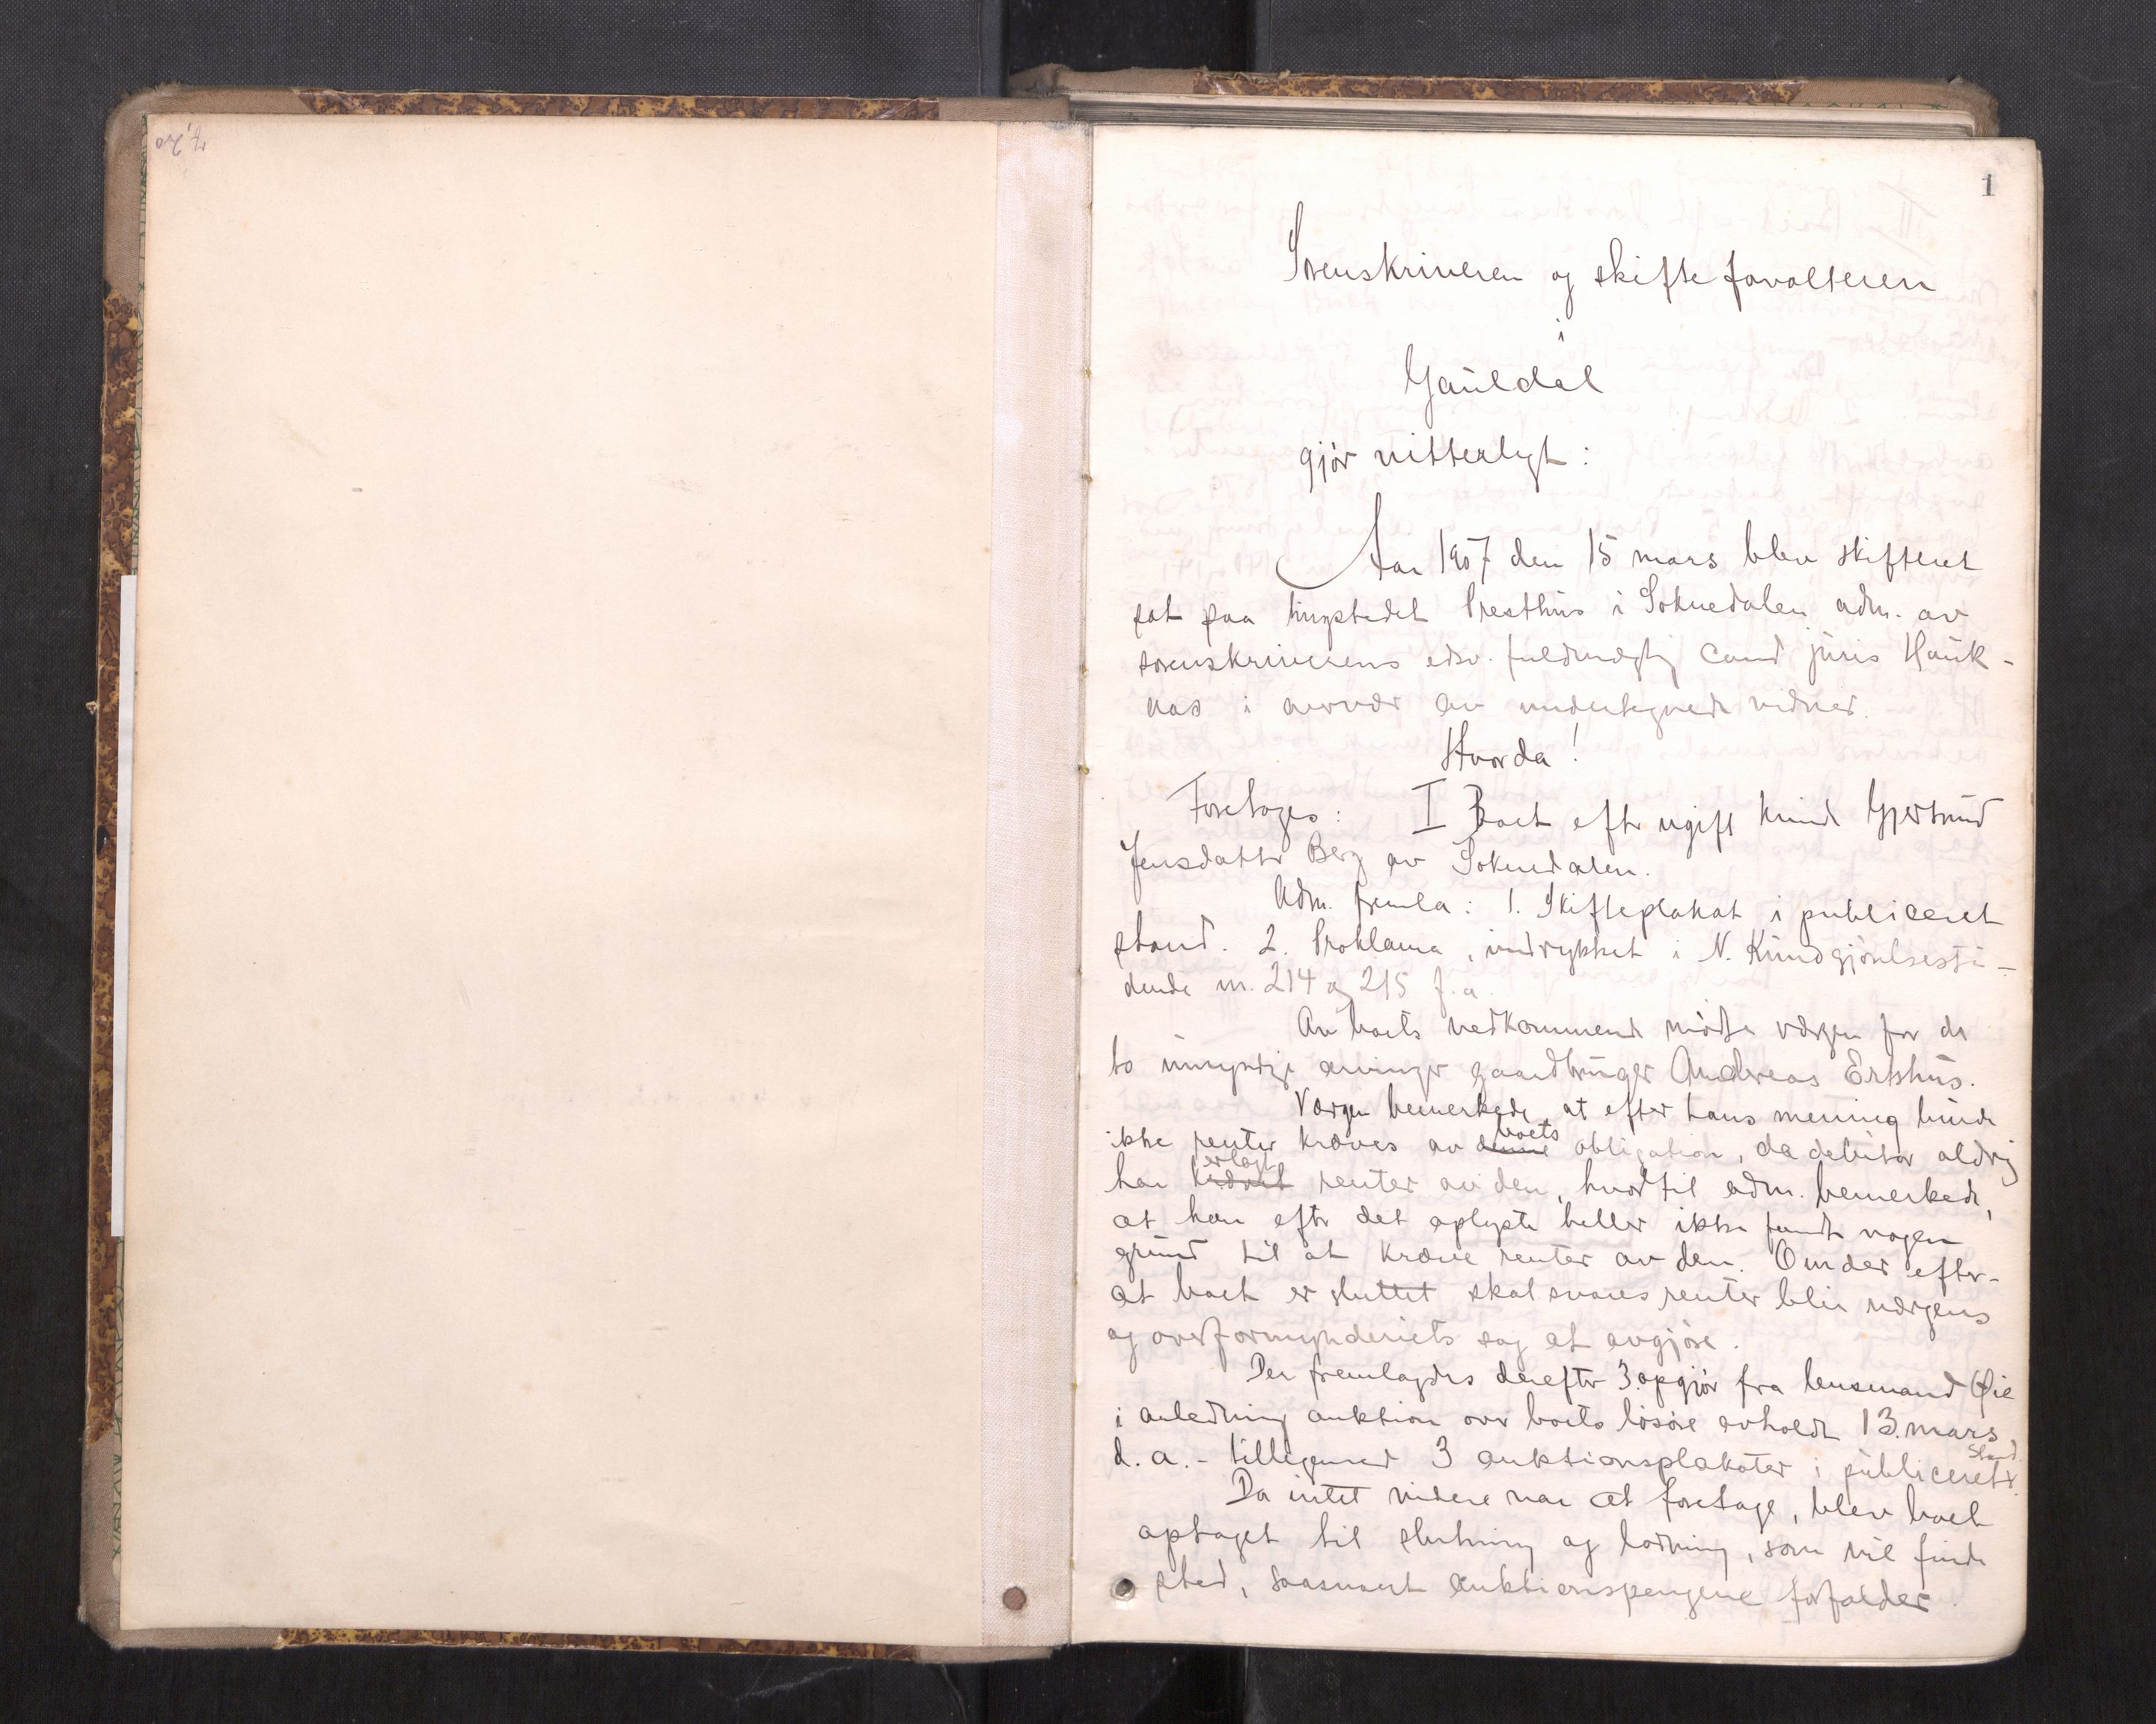 1
Sorenskriveren og skifteforvalteren
i
Gauldal
gjör vitterligt:
Aar 1907 den 15 mars blev skifteret
sat paa tingstedet Presthus i Soknedalen adm. av
sorenskriverens edsv. fuldmægtig cand juris Hauk-
nas i overvær av undertegnede vidner.
Hvorda!
Foretoges: I Boet efter ugift kvinde Gjertrud
Jensdatter Berg av Soknedalen.
Adm. fremla: 1. Skifteplakat i publiceret
stand. 2. Proklama, indrykket i N. Kundgjörelsesti-
dende nr. 214 og 215 f.a.
Av boets vedkommende mödte værgen for de
to umyndige arvinger gaardbruger Andreas Ertshus.
Værgen bemerkede, at efter hans mening burde
ikke renter kræves av denne boets obligation, da debitor aldrig
har krævet erlagt renter av den, hvortil adm. bemerkede,
at han efter det oplyste heller ikke fandt nogen
grund til at kræve renter av den. Om der efter-
at boet er sluttet skal svares renter blir værgens
og overformynderiets sag at avgjöre.
Der fremlagdes derefter 3. opgjör fra lensmand Øie
i anledning auktion over boets lösöre avholdt 13. mars
d.a. - tillegemed 3 auktionsplakater i publiceret stand.
Da intet videre var at foretage, blev boet
optaget til slutning og lodning, som vil finde
sted, saasnart auktionspengene forfalder.